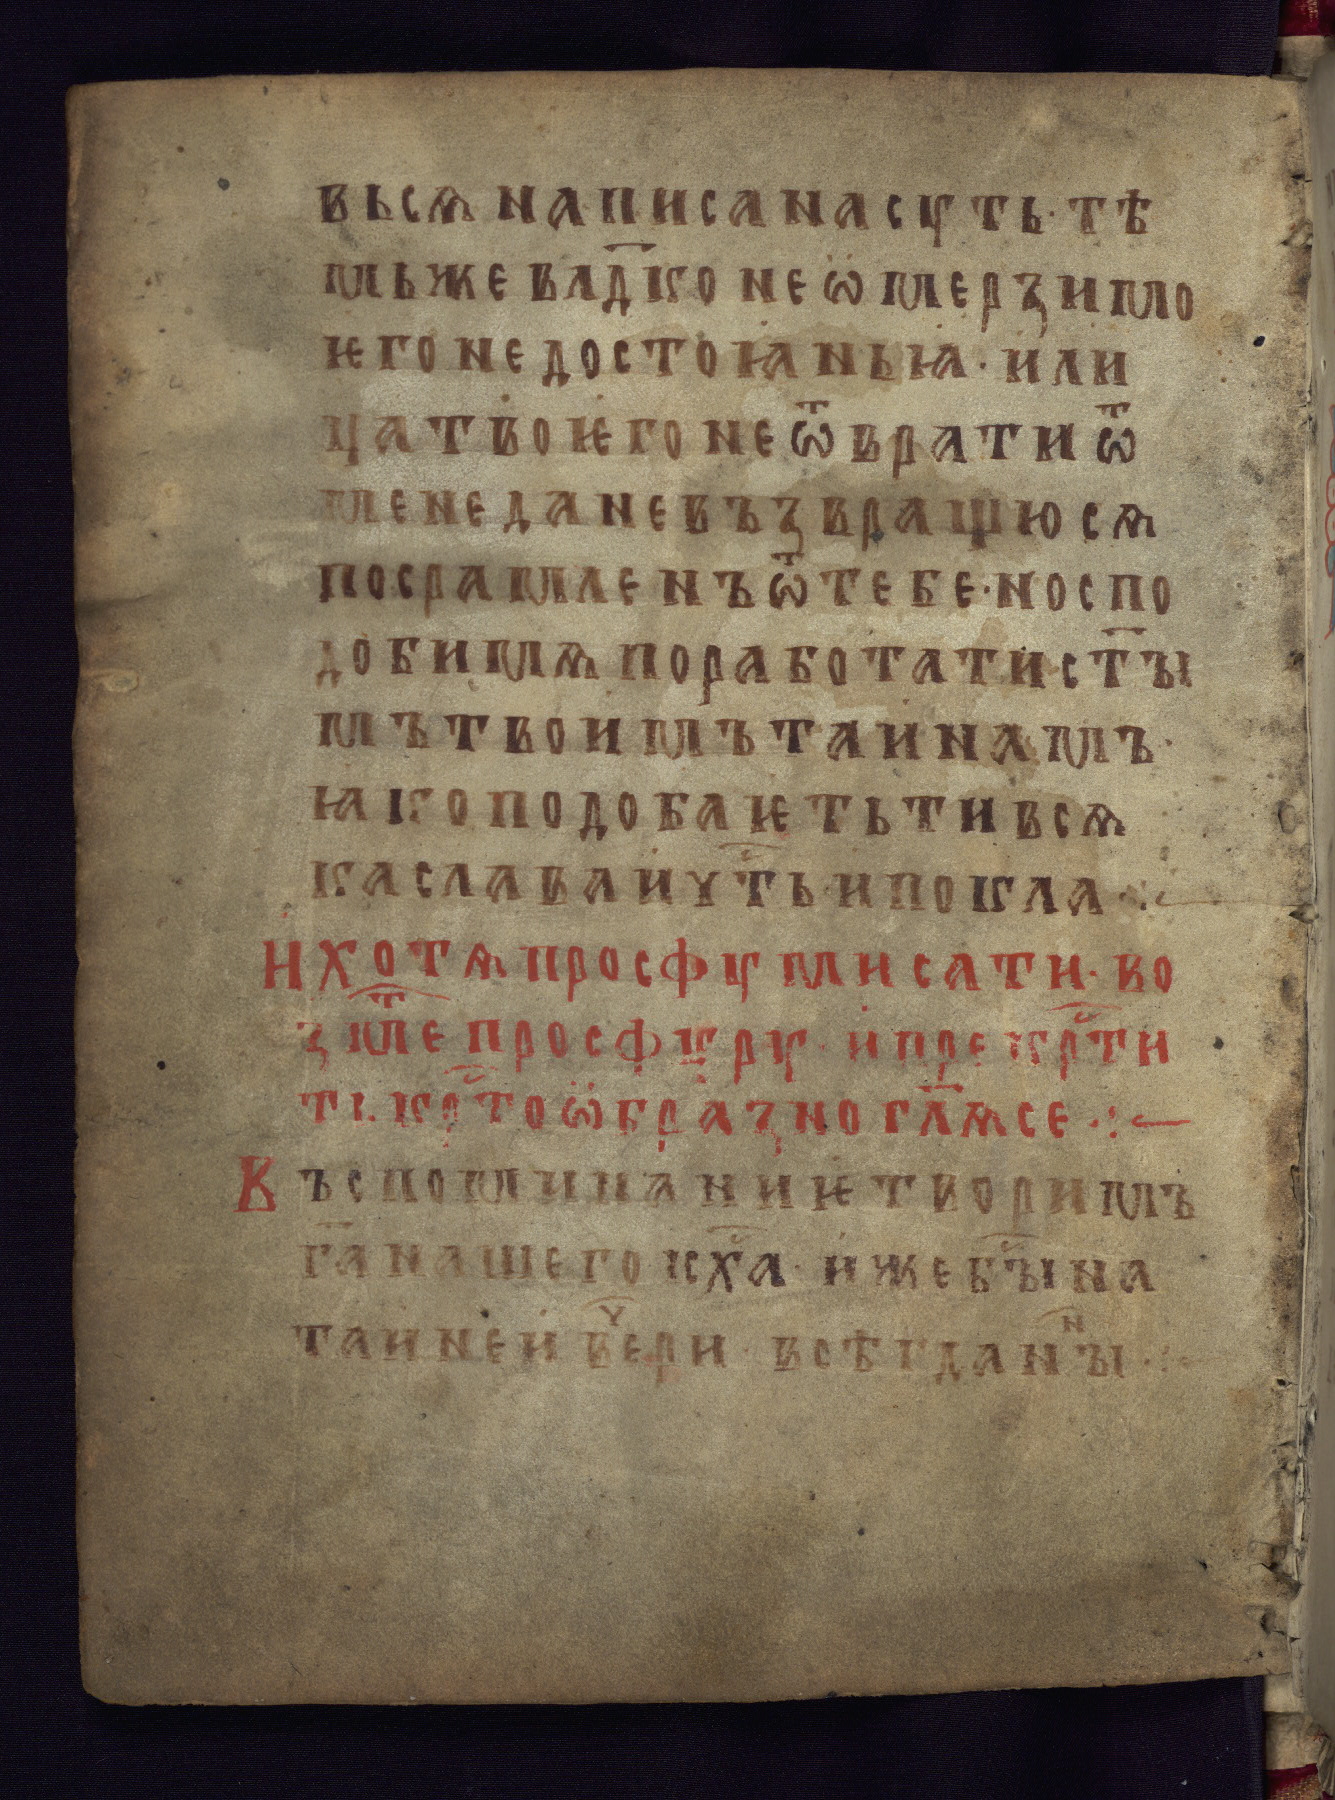 вьсѧ написана сꙋть· тѣ
мьже влад҃ко не ѡ̈мерзи мо
ѥго недостоꙗньꙗ· и ли
ца твоѥго не ѿврати ѿ
мене да не възвращюсѧ
посрамленъ ѿ тебе· но спо
доби мѧ поработати ст҃ы
мъ твоимъ таинамъ·
ꙗко подобаѥть ти всѧ
ка слава и чⷭ҇ть и покла ·:
И хотѧ просфꙋ мисати· во
просфꙋрꙋ· и прекрⷭ҇ти
крⷭ҇тоѡ̈бразно гл҃ѧ се ·:
Въспоминаниѥ творимъ
га҃ нашего исха҃· иже бы на
таинеи веⷱ҇ри· всѣгда нⁿы ·: